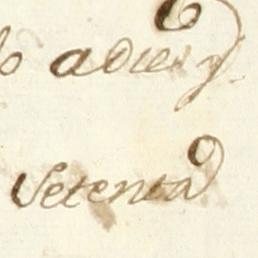 adies y
Setenta